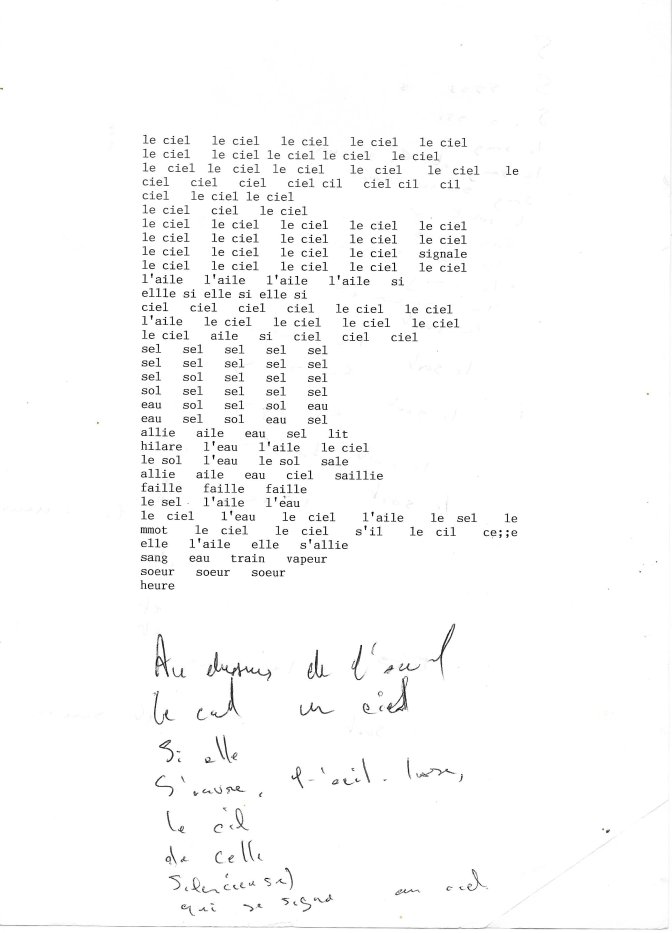 le ciel le ciel le ciel le ciel le ciel
le ciel le ciel le ciel le ciel le ciel
le ciel le ciel le ciel le ciel le ciel le
ciel ciel ciel ciel cil ciel cil cil
ciel le ciel le ciel
le ciel ciel le ciel
le ciel le ciel le ciel le ciel le ciel
le ciel le ciel le ciel le ciel le ciel
le ciel le ciel le ciel le ciel signale
le ciel le ciel le ciel le ciel le ciel
l'aile l'aile l'aile l'aile si
ellle si elle si elle si
ciel ciel ciel ciel le ciel le ciel
l'aile le ciel le ciel le ciel le ciel
le ciel aile si ciel ciel ciel
sel sel sel sel sel
sel sel sel sel sel
sel sol sel sel sel
sol sel sel sel sel
eau sol sel sol eau
eau sel sol eau sel
allie aile eau sel lit
hilare l'eau l'aile le ciel
le sol l'eau le sol sale
allie aile eau ciel saillie
faille faille faille
le sel l'aile l'eau
le ciel l'eau le ciel l'aile le sel le
mmot le ciel le ciel s'il le cil ce;;e
elle l'aile elle s'allie
sang eau train vapeur
soeur soeur soeur
heure
Au dessus de l'oeil
le un ciel
Si elle
S'ouvre, l'oeil
le cil
de celle
Silencieuse)
qui se signe au ciel